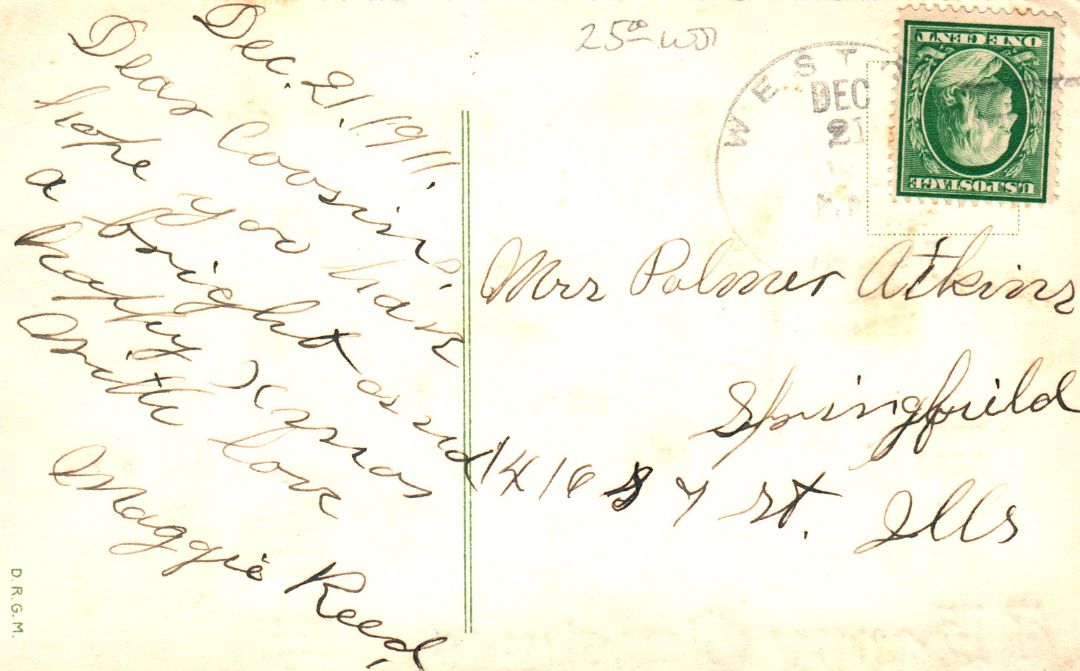 Dec. 21, 1911.
Dear Coosin,
hope you have
a bright and
happy Xmas
With love
Maggie Reed,
D.R.G.M.
WEST
DEC
21
ONE CENT
U.S. POSTAGE
Mrs Palmer Atkins
Springfield
1416 S 7 st. Ills